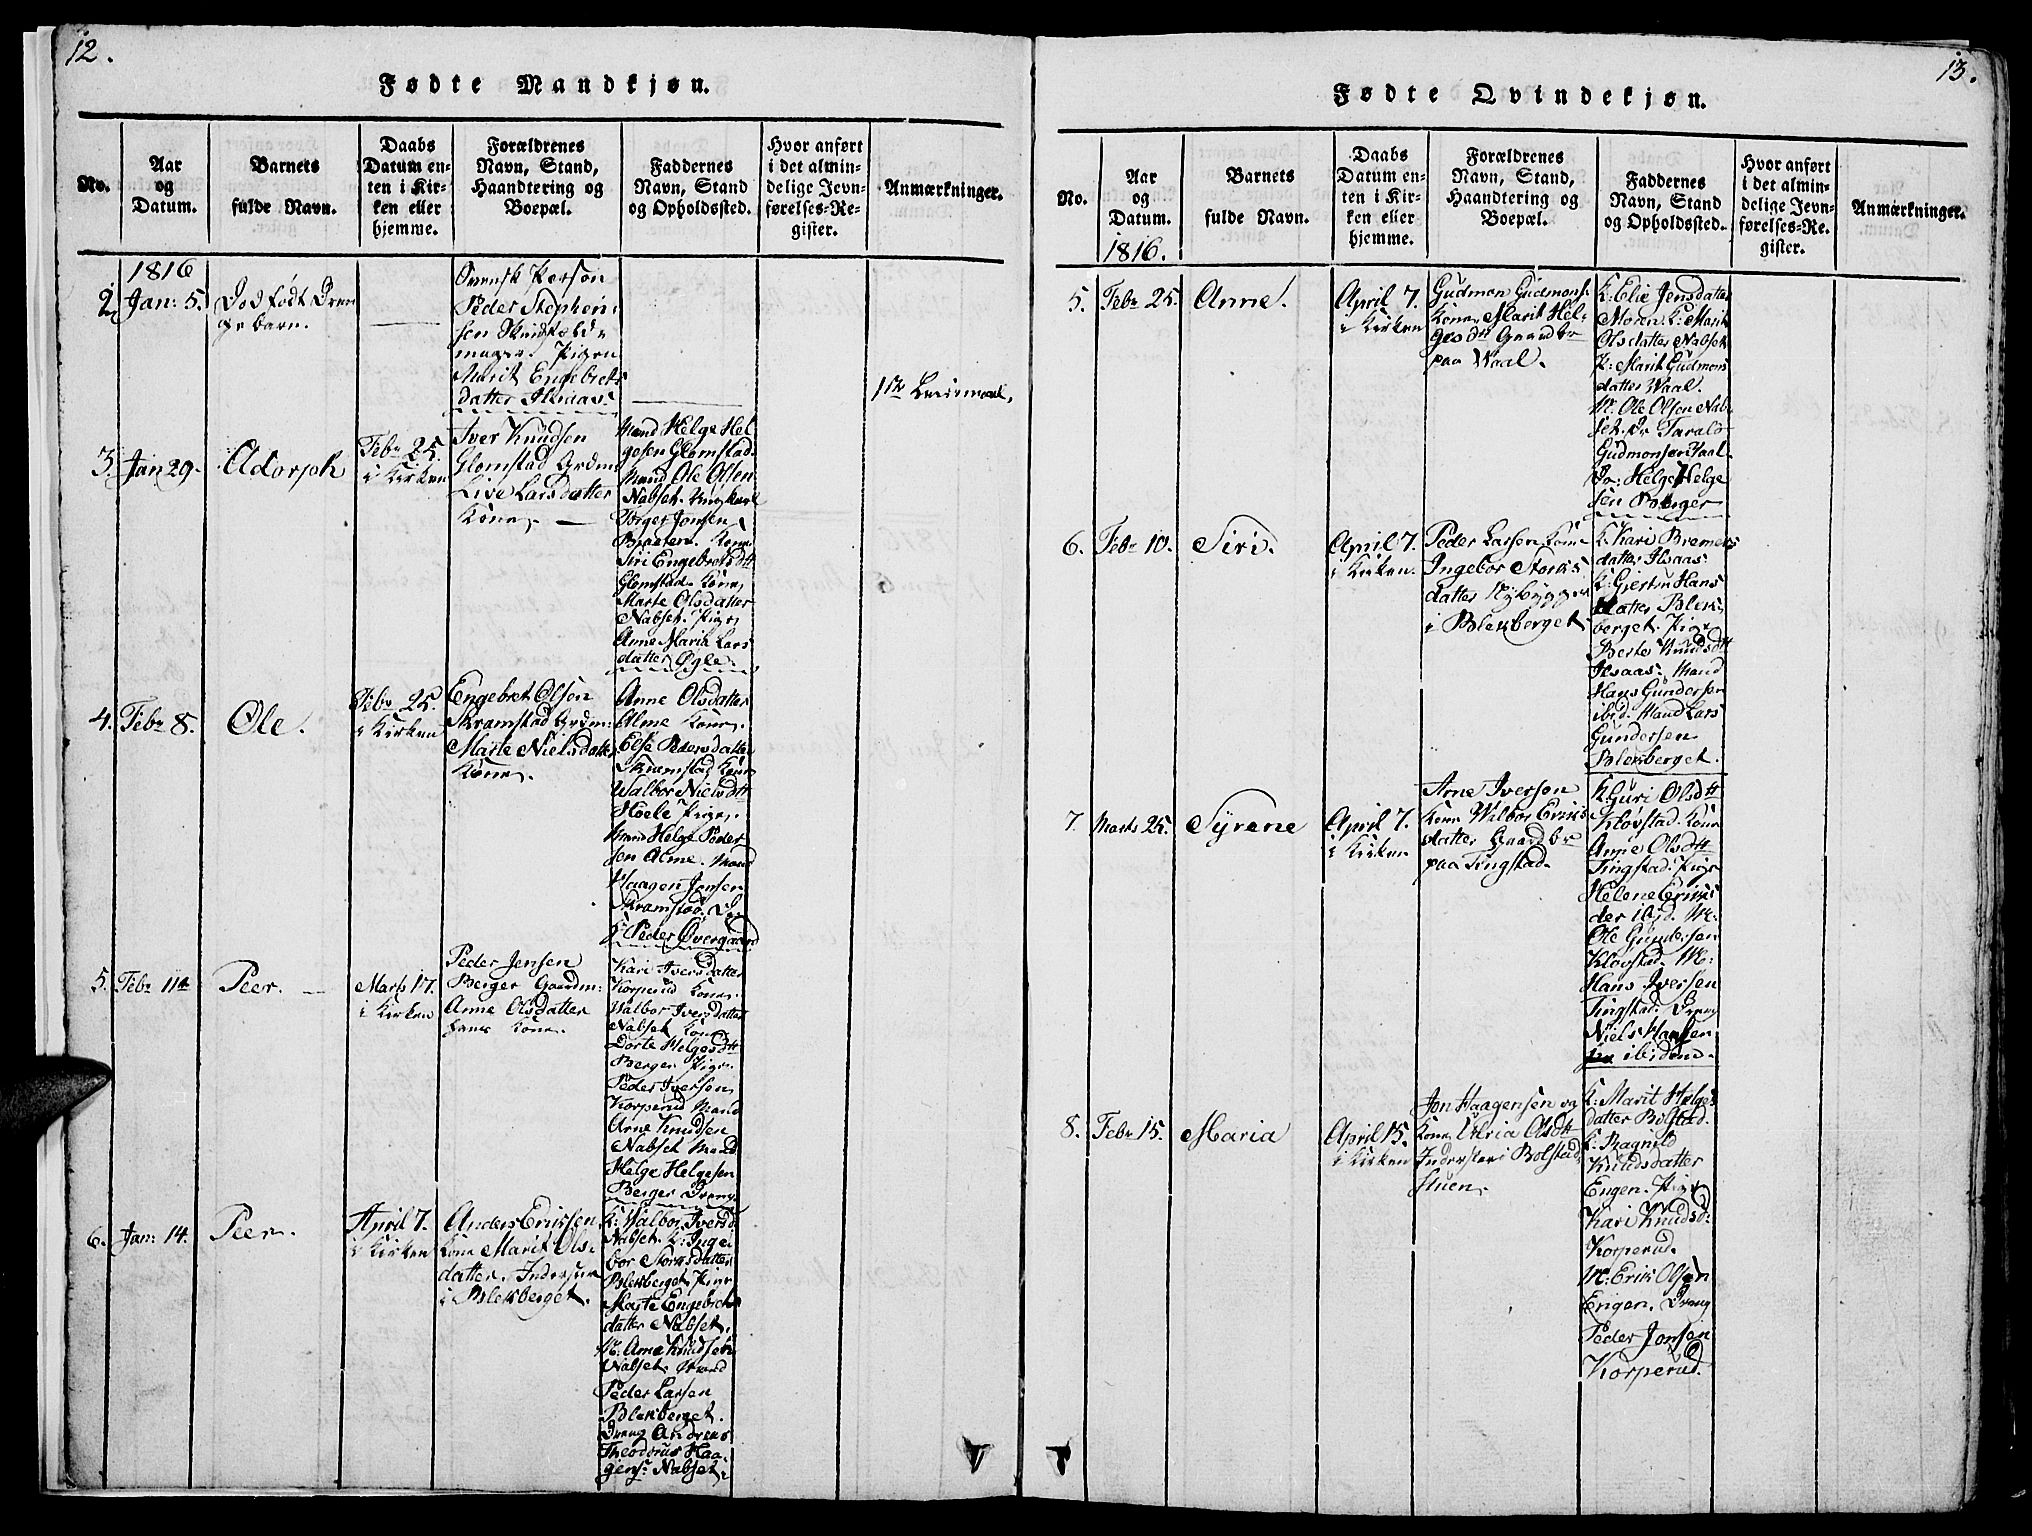 12.
Fødte Mandkjøn.
No.
Aar
og
Datum.
Barnets
fulde Navn.
Daabs
Datum en-
ten i Kir-
ken eller
hjemme.
Forældrenes
Navn, Stand,
Haandtering og
Boepæl.
Faddernes
Navn, Stand
og Opholdssted.
Hvor anført
i det almin-
delige Jevn-
førelses-Re-
gister.
Anmærkninger.
1816
2. Jan: 5.
Død født Dren
ge barn.
Svensk Person
Peder Stephen-
sen Skindfæld-
mager. Pigen
Marit Engebrets
datter Ilsaas.
1ste Leiermaal.
3. Jan 29.
Adorph
Febr 25.
i Kirken
Iver Knudsen
Glomstad Grdm
Live Larsdatter
Kone.
Mand Helge Hel
gesen Glomstad.
Mand Ole Olsen
Nabset. Ungkarl
Børger Jonsen
Braaten. Kone
Siri Engebretsdtt
Glomstad. Kone
Marte Olsdatter
Nabset. Pige
Anne Marie Lars
datter Øgle.
4. Febr 8.
Ole.
Febr 25.
i Kirken
Engebret Olsen
Skramstad Grdm:
Marte Nielsdatter
Kone.
Anne Olsdatter
Alme Kone.
Else Pedersdatter
Skramstad Kone
Walbor Nielsdtt
Hoele Pige.
Mand Helge Peder
sen Alme. Mand
Haagen Jensen
Skramstad. Dr.
Peder Øvergaard
5. Febr 11te
Peer.
Marts 17.
i Kirken
Peder Jensen
Berger Gaardm:
Anne Olsdatter
hans Kone.
Kari Iversdatter
Korperud Kone.
Walbor Iversdatter
Nabset Kone
Dorte Helgesdtt
Berger Pige.
Peder Iversen
Korperud Mand
Arne Knudsen
Nabset Mand
Helge Helgesen
Berger Dreng.
6. Jan: 14.
Peer.
April 7.
i Kirken
Anders Eriksen
Kone Marit Ols-
datter. Inderster
i Blekberget.
K: Walbor Iversd.
Nabset. K: Inge-
bor Storksdatter
Blekberget. Pige
Marte Engebrets
datter Nabset.
M: Arne Knudsen
Nabset. Mand
Peder Larsen
Blekberget.
Dreng Andreas
Theodorus Haa-
gens: Nabset.
13.
Fødte Qvindekjøn.
No.
Aar
og
Datum.
Barnets
fulde Navn.
Daabs
Datum en-
ten i Kir-
ken eller
hjemme.
Forældrenes
Navn, Stand,
Haandtering og
Boepæl.
Faddernes
Navn, Stand
og Opholdssted.
Hvor anført
i det almin-
delige Jevn-
førelses-Re-
gister.
Anmærkninger.
1816.
5. Febr 25.
Anne.
April 7.
i Kirken
Gudmon Gudmons:
Kone Marit Hel-
gesdtt Gaardbr
paa Waal.
K: Elie Jensdatter
Moren. K: Marit
Olsdatter Nabset
P: Marit Gudmons
datter Waal.
M. Ole Olsen Nab-
set. Dr Tarald
Gudmonsen Vaal.
Dr: Helge Helge
sen Berger
6. Febr 10.
Siri.
April 7.
i Kirken.
Peder Larsen Kone
Ingebor Storks
datter Nybygger
i Blekberget
K: Kari Bremers
datter Ilsaas.
K: Giertru Hans
datter Blek-
berget. Pige
Berte Knudsdtt
Ilsaas. Mand
Hans Gundersen
ibid. Mand Lars
Gundersen
Blekberget.
7. Marts 25.
Syrene
April 7.
i Kirken
Arne Iversen
Kone Wilbor Eriks
datter Gaardbr
paa Tingstad.
K: Guri Olsdtt
Klovstad. Kone
Anne Olsdtt
Tingstad. Pige
Helene Eriks
der ibid. M:
Ole Gundersen
Klovstad. M:
Hans Iversen
Tingstad. Dreng
Niels Hansen
ibidem.
8. Febr 15.
Maria
April 15.
i Kirken
Jon Haagensen og
Kone Maria Olsdtt
Inderster i Bolstad
stuen.
K: Marit Helges
datter Bolstad.
K: Ragnild
Knudsdatter
Engen. Pige
Kari Knudsd:
Korperud.
M: Erik Olsen
Engen. Dreng
Peder Jonsen
Korperud.